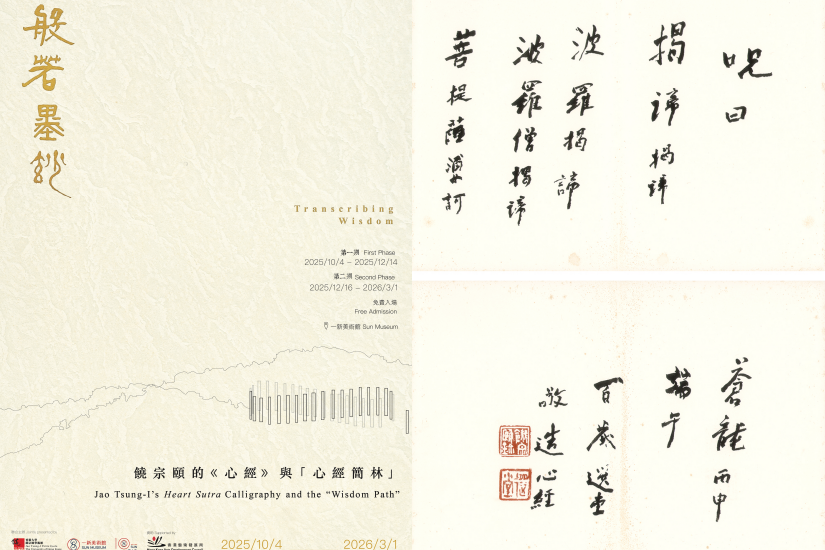 般若墨鈔
Transcribing
Wisdom
第一期 First Phase
2025/10/4 – 2025/12/14
第二期 Second Phase
2025/12/16 – 2026/3/1
免費入場
Free Admission
一新美術館 Sun Museum
饒宗頤的《心經》與「心經簡林」
Jao Tsung-I's Heart Sutra Calligraphy and the “Wisdom Path”
一新美術館
SUN MUSEUM
2025/10/4
2026/3/1
呪曰
揭諦揭諦
波羅揭諦
波羅僧揭諦
菩提薩婆訶
蒼龍丙申
端午
百歲選堂
敬造心經